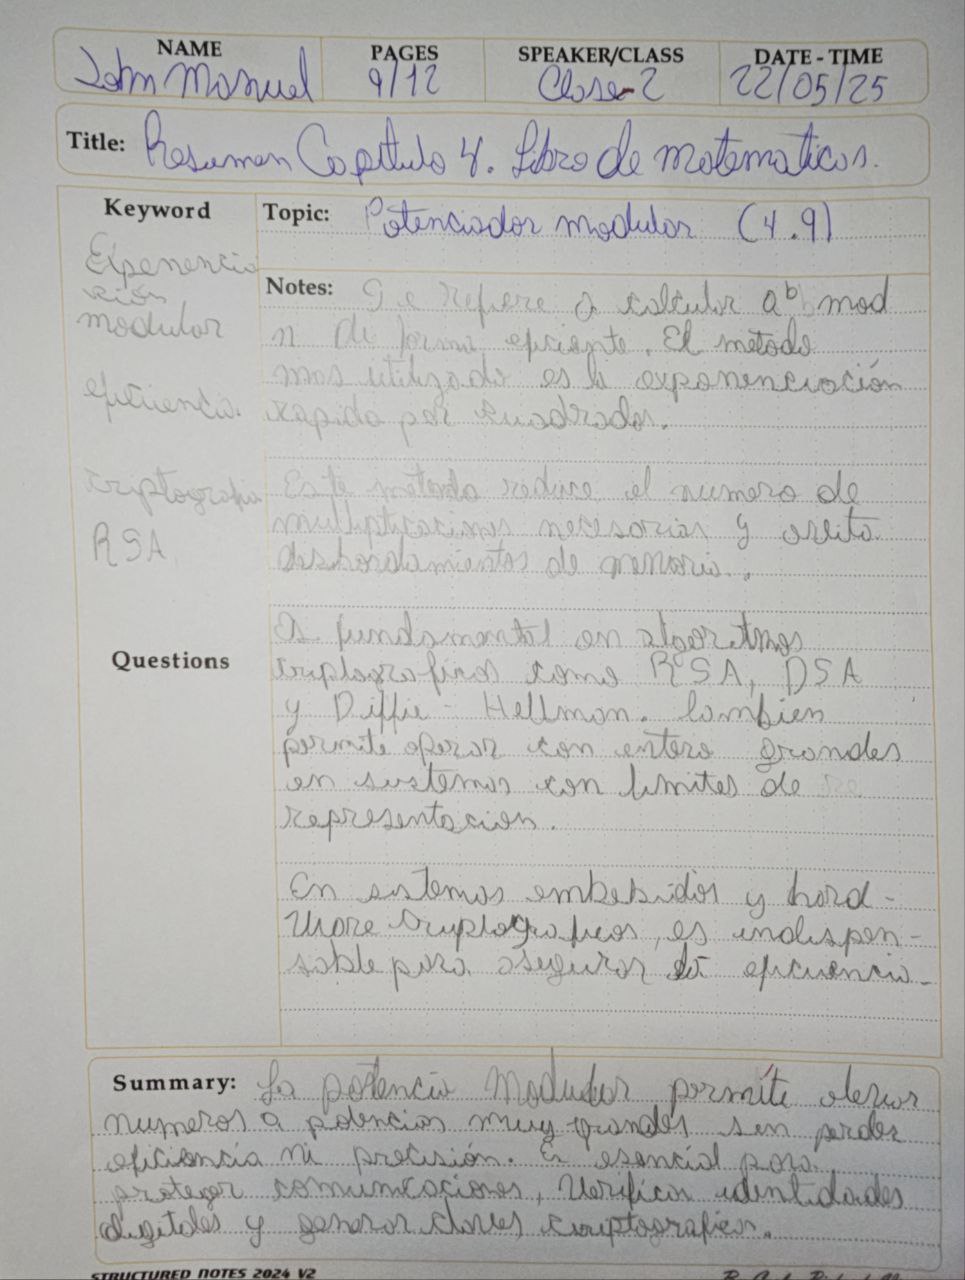 NAME PAGES SPEAKER/CLASS DATE - TIME
John Manuel 9/12 Clase-2 22/05/25
Title: Resumen Capitulo 4. Libro de matematicas.
Keyword
Exponencia
ción
modular
eficiencia.
criptografia
RSA
Questions
Topic: Potenciador modular (4.9)
Notes: Se refiere a calcular a^b mod
n de forma eficiente. El metodo
mas utilizado es la exponenciación
rapida por cuadrados.
Este metodo reduce el numero de
multiplicaciones necesarias y evita
desbordamientos de memoria.
Es fundamental en algoritmos
criptograficos como RSA, DSA
y Diffie - Hellman. Tambien
permite operar con entero grandes
en sistemas con limites de
representacion.
En sistemas embebidos y hard-
ware criptograficos, es indispen-
sable para asegurar la eficiencia.
Summary: La potencia Modular permite elevar
numeros a potencias muy grandes sin perder
eficiencia ni precisión. Es esencial para
proteger comunicaciones, Verificar identidades
digitales y generar claves criptograficas.
STRUCTURED NOTES 2024 V2